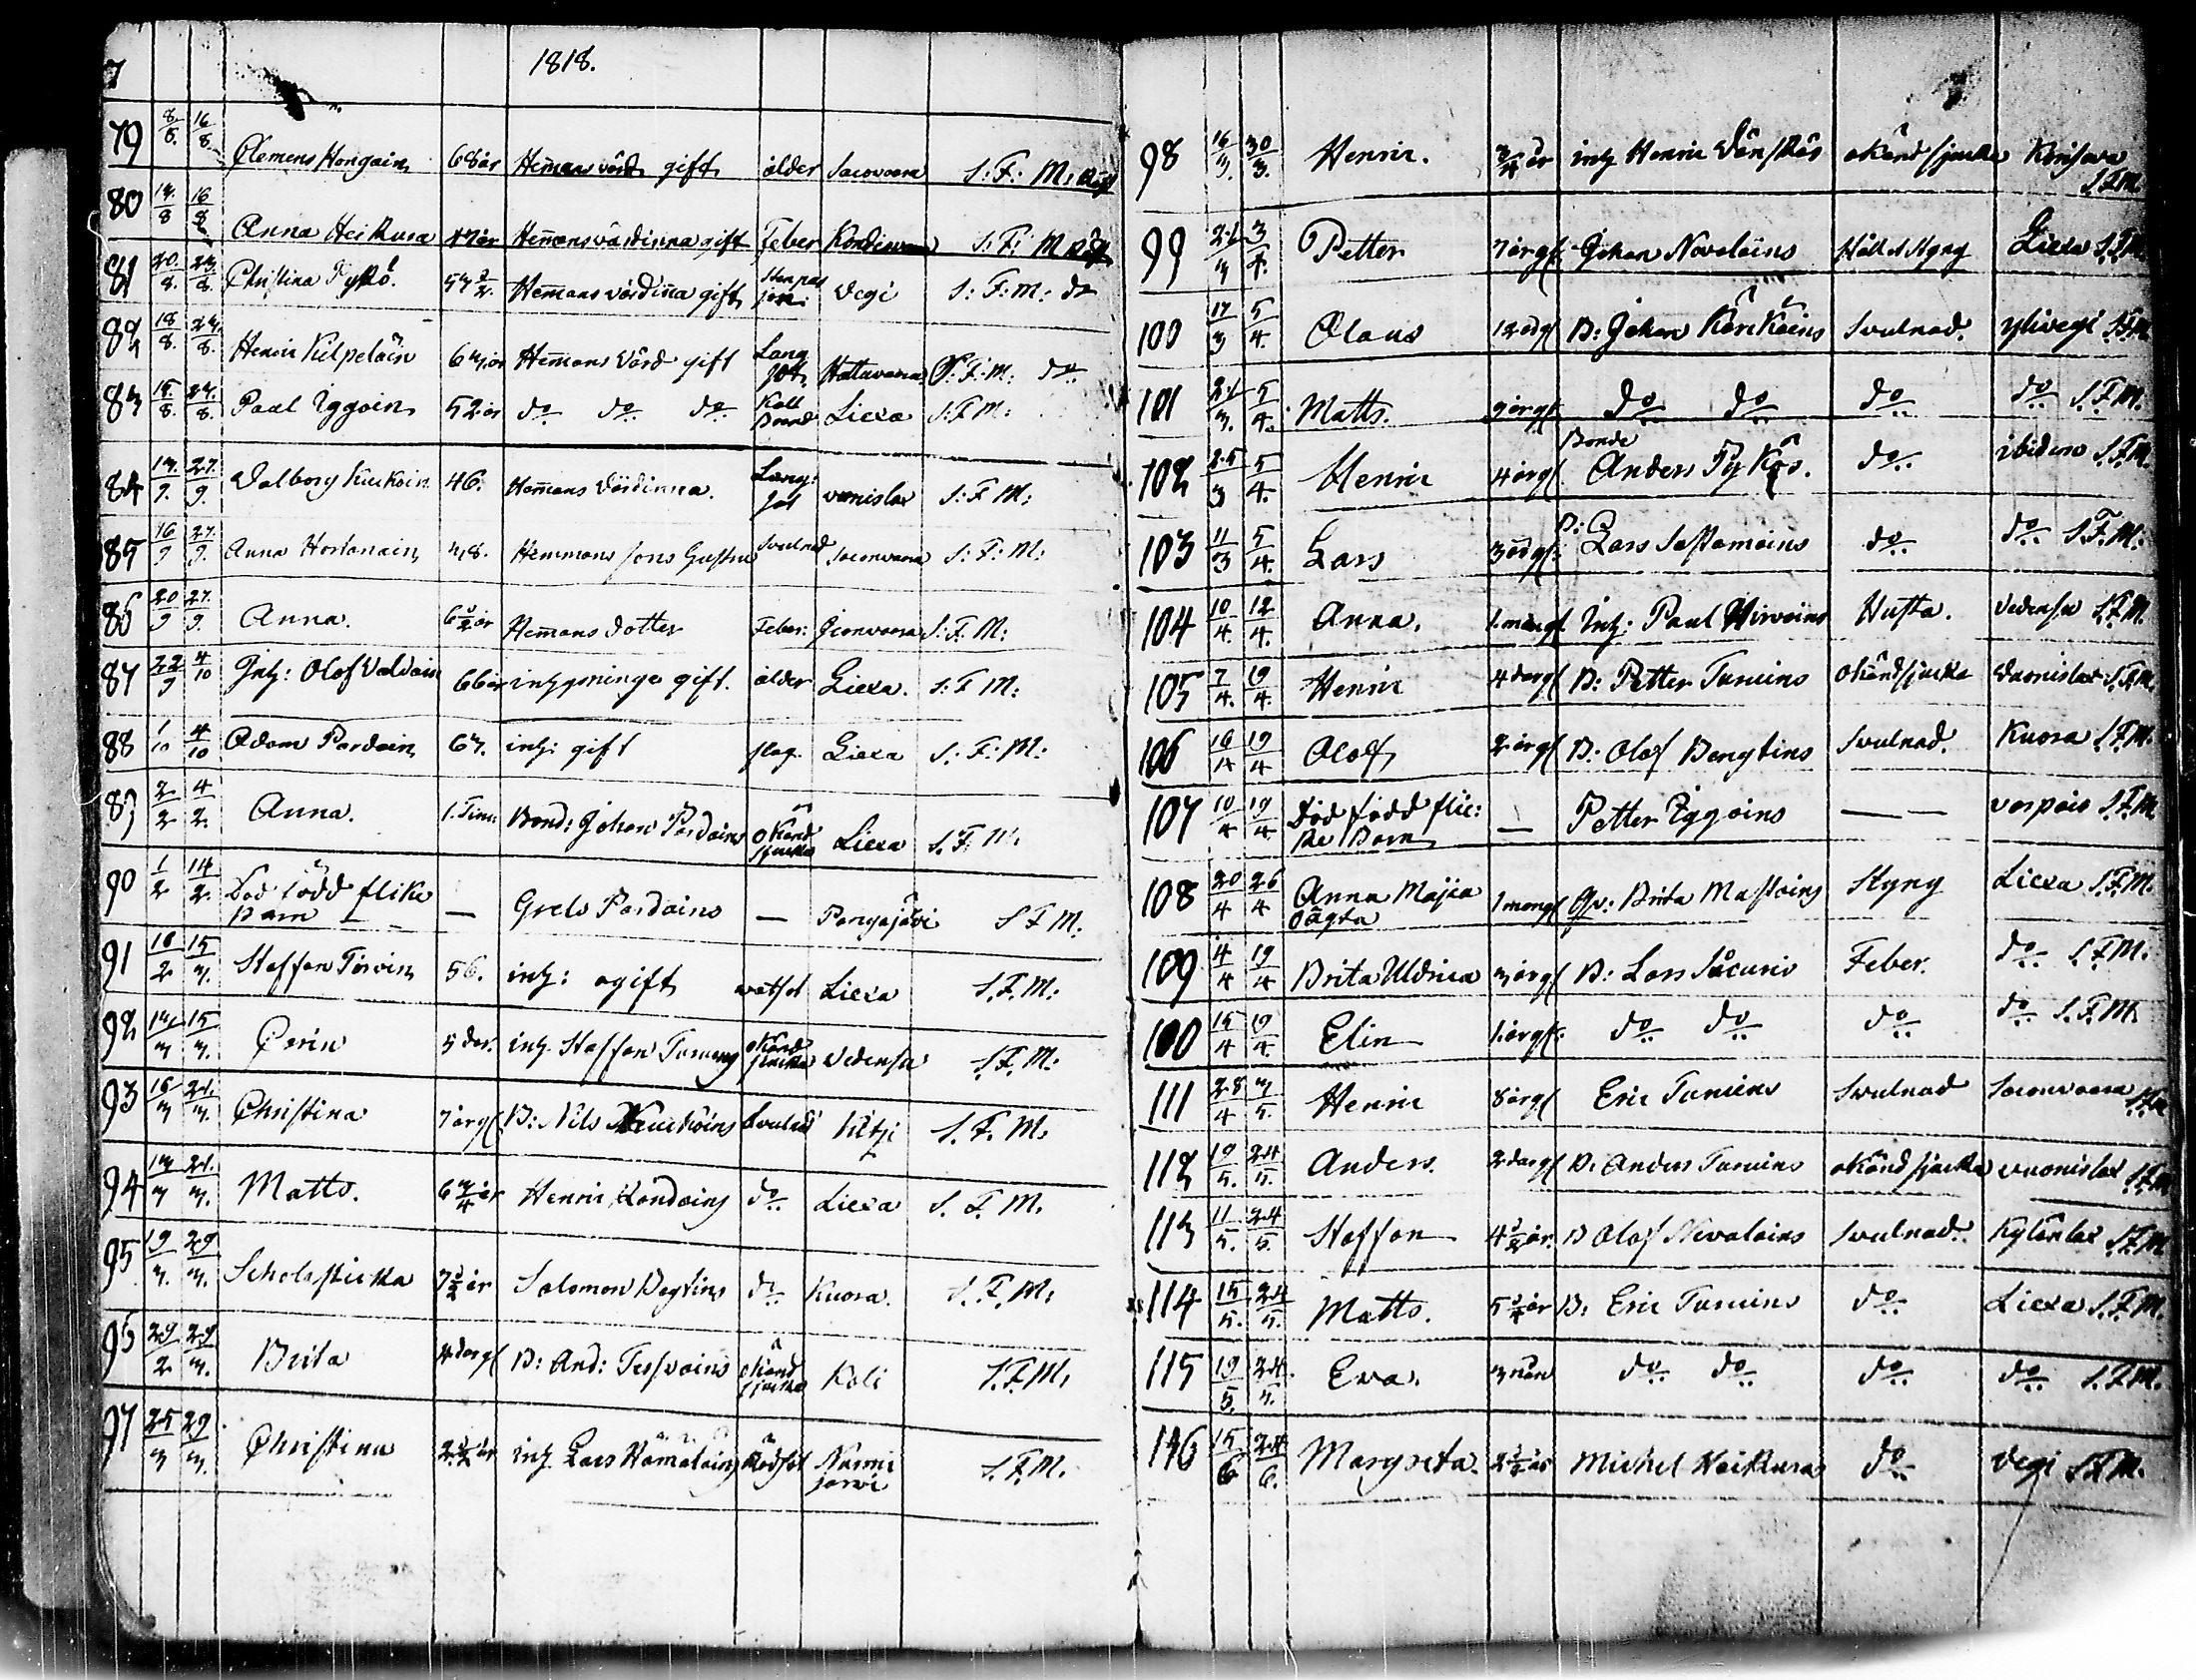 1818.
79 8/8. 16/8. Clemens Hongain 68 år Hem̄ans värd gift ålder Sacovaara S: F: M:
80 14/8 16/8 Anna Heikura 47 år Hem̄ansvärdinna gift Feber S: F: M
81 20/8. 23/8. Christina Pykkö. Hem̄ans värdin̄a gift Vegi S: F: M: do
82 18/8. 23/8. Henric Kilpeläin Hem̄ans Värd gift Lång sot Hattuvaara S: F: M: do
83 Paul Iggoin 52 år do do do Kall Brand Liexa S: F M:
84 Valborg Kuckoin 46. Hem̄ans Värdinna. Lång: sot vuonislax S: F M:
85 16/9 27/9. Anna Hortanain 48. Hemmans sons Hustru Svulnad Saconvaara S: F: M:
86 20/9 27/9. Anna. 6½ år Hem̄ans dotter Feber. S: F. M:
87 22/9 4/10 Inh: Olof Valdain 66 år inhysninge gift. ålder Liexa. S: F M:
88 1/10 4/10 Adam Pardain 63. inh: gift slag. Liexa S: F: M:
89 2/2 4/2. Anna. 1. Tim: Bond: Johan Pardains okänd sjucka Liexa S. F. M.
90 1/2 14/2. Död född flike Barn — Grels Pardains — Pangajävi S F M.
91 16/2 15/3. Staffan Törvin 56. inh: ogift watsot Liexa S. F. M:
92 13/3 15/3. Carin 5 dar. inh. Staffan okänd sjucka Vedensu S. F. M:
93 16/3 21/3. Christina 7 år gl B: Nils Kuckoins Svulnad Vitzi S. F. M.
94 13/3 21/3. Matts. 6¾ år Henric Ländoins do Liexa S. F. M.
95 19/3. 29/3. Scholasticka 7½ år Salomon Regtins do Kuora. S. F. M.
96 29/2 29/3. Brita 4 dar gl B: And: okänd sjucka Koli S. F. M.
97 25/3 29/3. Christina 2½ år inh Lars Hämäläins Rödsot Nurmi jarvi S. F. M.
98 16/3. 30/3. Henric. ¾ år inh Henric Vänskäs okänd sjucka S. F. M.
99 21/3 3/4. Petter 7 år gl. Johan Novolains Håll o styng Liexa S. F. M.
100 17/3 5/4. Olaus 12 år gl B: Johan Kärkäins Svulnad. ylivegi S. F. M.
101 21/3. 5/4. Matts. 9 år gl. do do do do S. F. M.
102 25/3 5/4. Henric 4 år gl Bonde Anders Pykös. do ibidem S. F. M.
103 11/3 5/4. Lars 3 år gl. B: Lars Sastamoins do do S. F. M.
104 10/4. 12/4. Anna. 1. mån gl. Inh: Paul Hirvoins Husta. Vedensu S. F. M.
105 7/4. 19/4. Henric 4 dar gl B: Petter Turuins okänd sjucka Vuonislax S. F. M.
106 16/4 19/4 Olof 2 år gl B: Olof Bengtins Svulnad. Kuora S. F. M.
107 10/4 19/4 Död född flic: ke Barn — Petter Iggoins — — varpais S. F. M.
108 20/4 26/4 Anna Majca oägta 1 mån gl Qv: Brita Mastoins Styng Liexa S. F. M.
109 4/4 19/4 Brita Uldrica 3 år gl B: Lars Säcuris Feber. do S. F. M.
100 15/4 19/4. Elin 1. år gl. do do do do S. F. M.
111 28/4 3/5. Henric 8 år gl Eric Turuins Svulnad Saconvaara
112 19/5. 24/5. Anders. 2 dar gl B. Anders Turuins okänd sjucka vuonislax S. F. M.
113 11/5. 24/5. Staffan 4½ år. B Olof Nevalains Svulnad. Kylänlax S. F. M.
114 15/5. 24/5. Matts. 5½ år B: Eric Turuins do Liexa S. F. M.
115 19/5. 24/5. Eva. 3 mån do do do do S. F. M.
116 15/6 24/6. Margreta. 2½ år Michel Heikura do Vegi S. F. M.